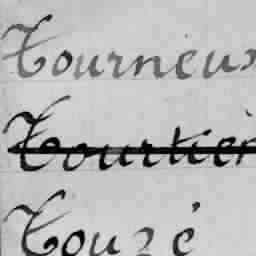 Tourneux
Tourtier
Touzé